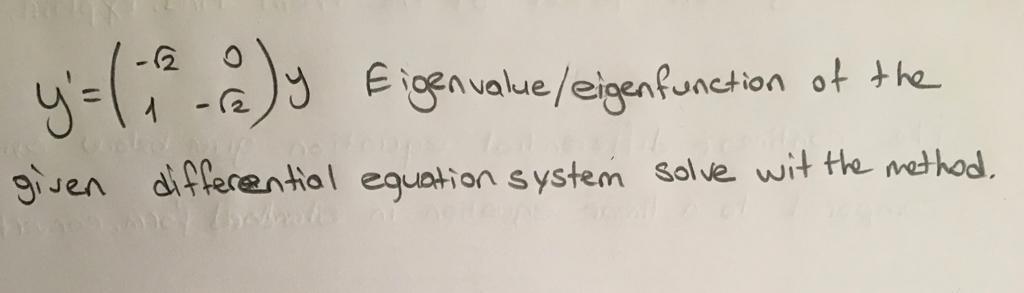 y' = ( -√2 0 ; 1 -√2 ) y Eigenvalue/eigenfunction of the
given differential equation system solve wit the method.